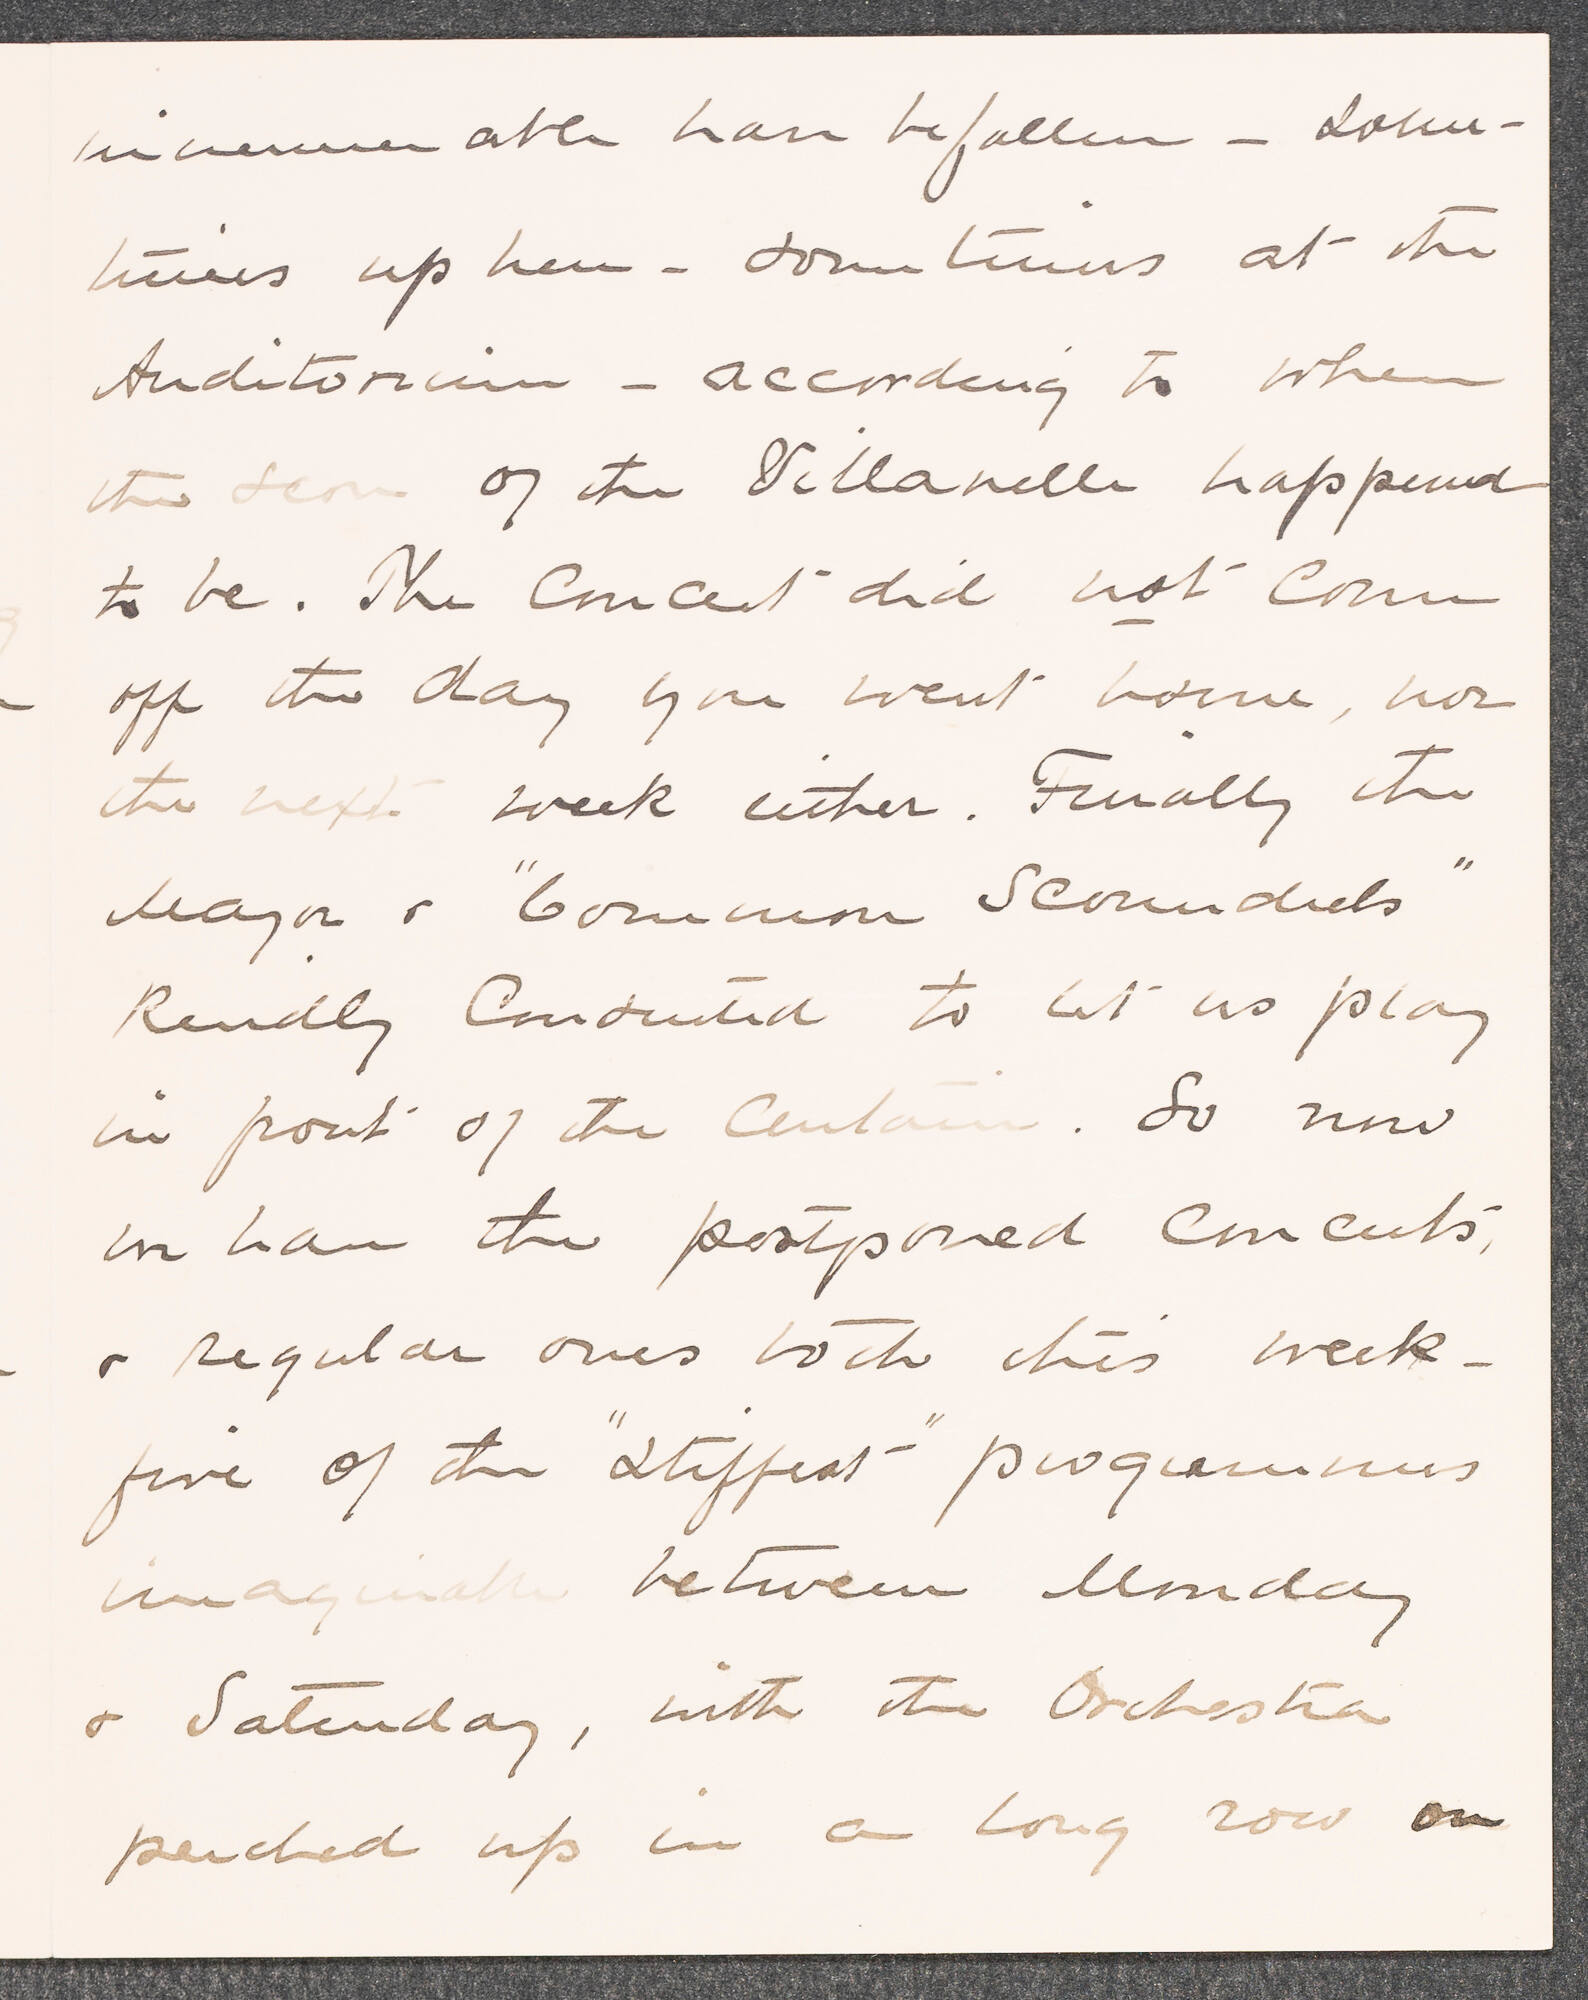 innumerable have befallen – some-
times up here – sometimes at the
Auditorium – according to where
the score of the Villanelle happened
to be. The Concert did not come
off the day you went home, nor
the next week either. Finally the
Mayor & "Common Scoundrels"
kindly consented to let us play
in front of the Curtain. So now
we have the postponed concerts,
& regular ones both this week –
five of the "stiffest" programmes
imaginable between Monday
& Saturday, with the Orchestra
perched up in a long row on